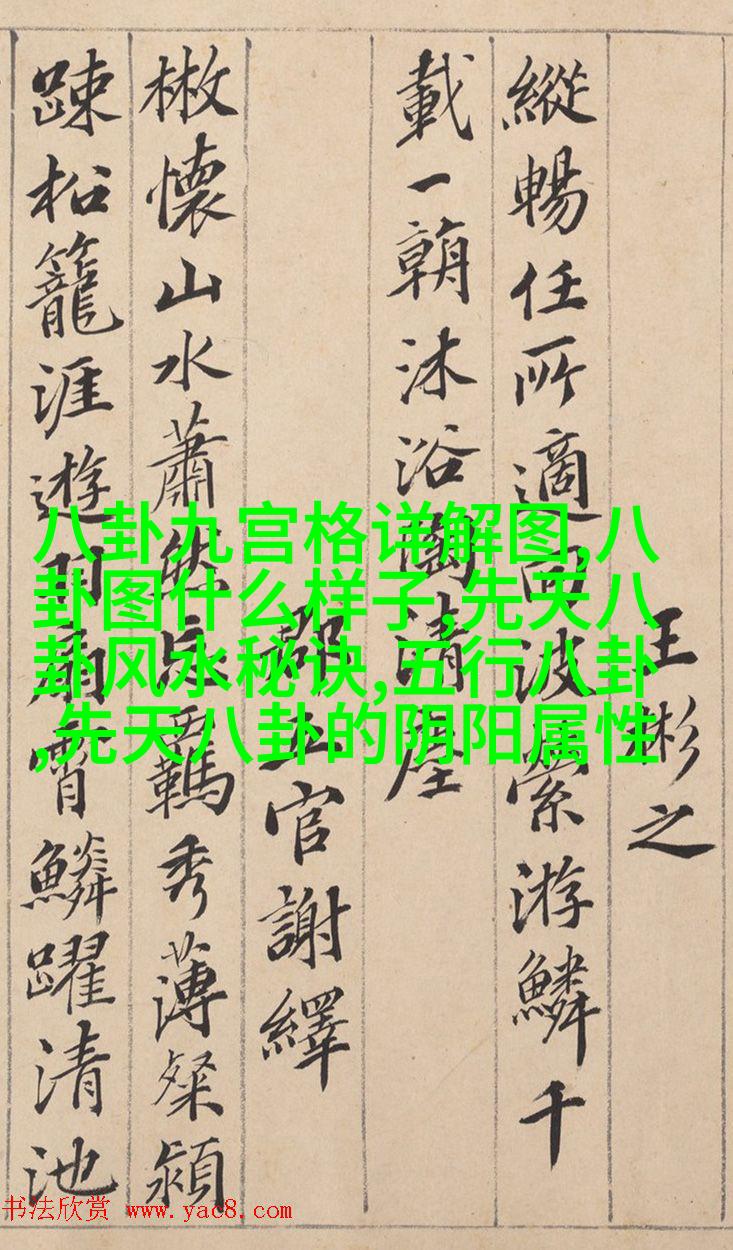 王彬之
縱暢任所適回波縈游鱗千
載一朝沐浴陶清塵
郡五官謝繹
懷山水蕭然忘羈秀薄粲穎
疎松籠涯遊羽扇霄鱗躍清池
八卦九宫格详解图,八
卦图什么样子,先天八
卦风水秘诀,五行八卦
,先天八卦的阴阳属性
书法欣赏 www.yac8.com